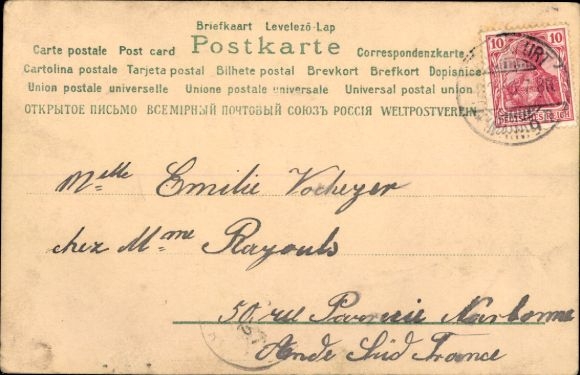 Briefkaart Levelező-Lap
Carte postale Post card Postkarte Correspondenzkarte
Cartolina postale Tarjeta postal Bilhete postal Brevkort Brefkort Dopisnice
Union postale universelle Unione postale universale Universal postal union
ОТКРЫТОЕ ПИСЬМО ВСЕМІРНЫЙ ПОЧТОВЫЙ СОЮЗЪ РОССІЯ WELTPOSTVEREIN
10 10
Melle Emilie Vocheyer
chez Mme Rayouls
50, rue Parerie Narbonne
Aude Süd France